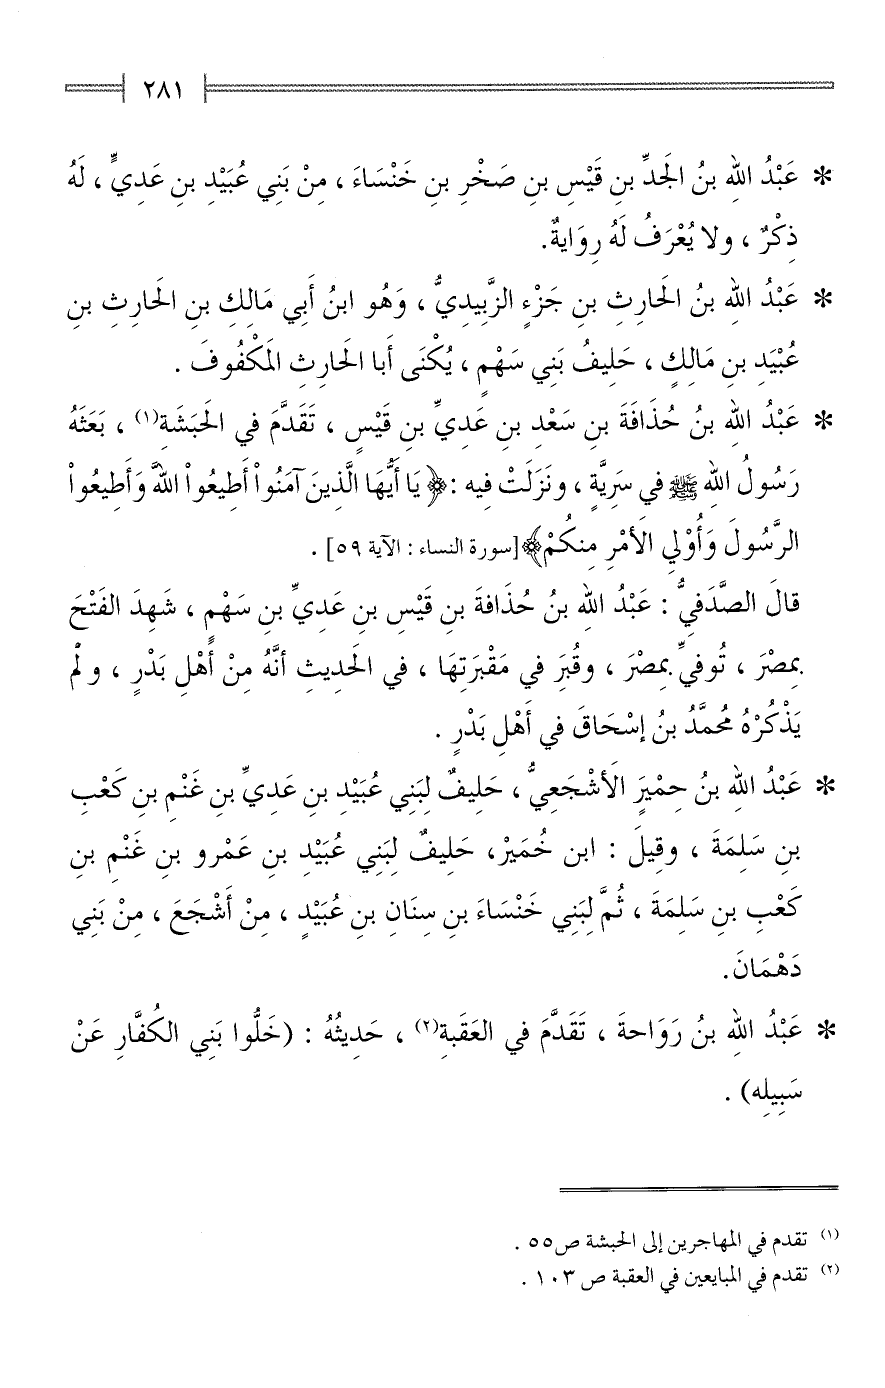 ٢٨١
* عَبْدُ اللهِ بنُ الجَدِّ بنِ قَيْسِ بنِ صَخْرِ بنِ خَنْسَاءَ ، مِنْ بَنِي عُبَيْدِ بنِ عَدِيٍّ ، لَهُ
ذِكْرٌ ، ولا يُعْرَفُ لَهُ رِوَايةٌ.
* عَبْدُ اللهِ بنُ الحَارِثِ بنِ جَزْءٍ الزَّبِيدِيُّ ، وَهُو ابنُ أَبي مَالِكِ بنِ الحَارِثِ بنِ
عُبْيَدِ بنِ مَالِكٍ ، حَلِيفُ بَنِي سَهْمٍ ، يُكْنَى أَبا الحَارِثِ المَكْفُوفَ .
* عَبْدُ اللهِ بنُ حُذَافَةَ بنِ سَعْدِ بنِ عَدِيِّ بنِ قَيْسٍ ، تَقَدَّمَ في الحَبَشَةِ(١) ، بَعَثَهُ
رَسُولُ اللهِ ﷺ في سَرِيَّةٍ ، ونَزَلَتْ فيه : ﴿يَا أَيُّهَا الَّذِينَ آمَنُواْ أَطِيعُواْ اللهَ وَأَطِيعُواْ
الرَّسُولَ وَأُوْلِي الأَمْرِ مِنكُمْ﴾ [سورة النساء : الآية ٥٩] .
قالَ الصَّدَفيُّ : عَبْدُ اللهِ بنُ حُذَافةَ بنِ قَيْسِ بنِ عَدِيِّ بنِ سَهْمٍ ، شَهِدَ الفَتْحَ
بِمِصْرَ ، تُوفيِّ بمِصْرَ ، وقُبِرَ في مَقْبَرَتِهَا ، في الحَدِيثِ أنَّهُ مِنْ أَهْلِ بَدْرٍ ، ولَمْ
يَذْكُرْهُ مُحمَّدُ بنُ إسْحَاقَ في أَهْلِ بَدْرٍ .
* عَبْدُ اللهِ بنُ حِمْيَرَ الأَشْجَعِيُّ ، حَلِيفٌ لِبَنِي عُبَيْدِ بنِ عَدِيِّ بنِ غَنْمِ بنِ كَعْبِ
بنِ سَلِمَةَ ، وقِيلَ : ابن خُمَيرْ، حَلِيفٌ لِبَنِي عُبَيْدِ بنِ عَمْرو بنِ غَنْمِ بنِ
كَعْبِ بنِ سَلِمَةَ ، ثُمَّ لِبَنِي خَنْسَاءَ بنِ سِنَانِ بنِ عُبَيْدٍ ، مِنْ أَشْجَعَ ، مِنْ بَنِي
دَهْمَانَ.
* عَبْدُ اللهِ بنُ رَوَاحةَ ، تَقَدَّمَ في العَقَبةِ(٢) ، حَدِيثُهُ : (خَلُّوا بَنِي الكُفَّارِ عَنْ
سَبِيلِه) .
(١) تقدم في المهاجرين إلى الحبشة ص٥٥ .
(٢) تقدم في المبايعين في العقبة ص ١٠٣ .